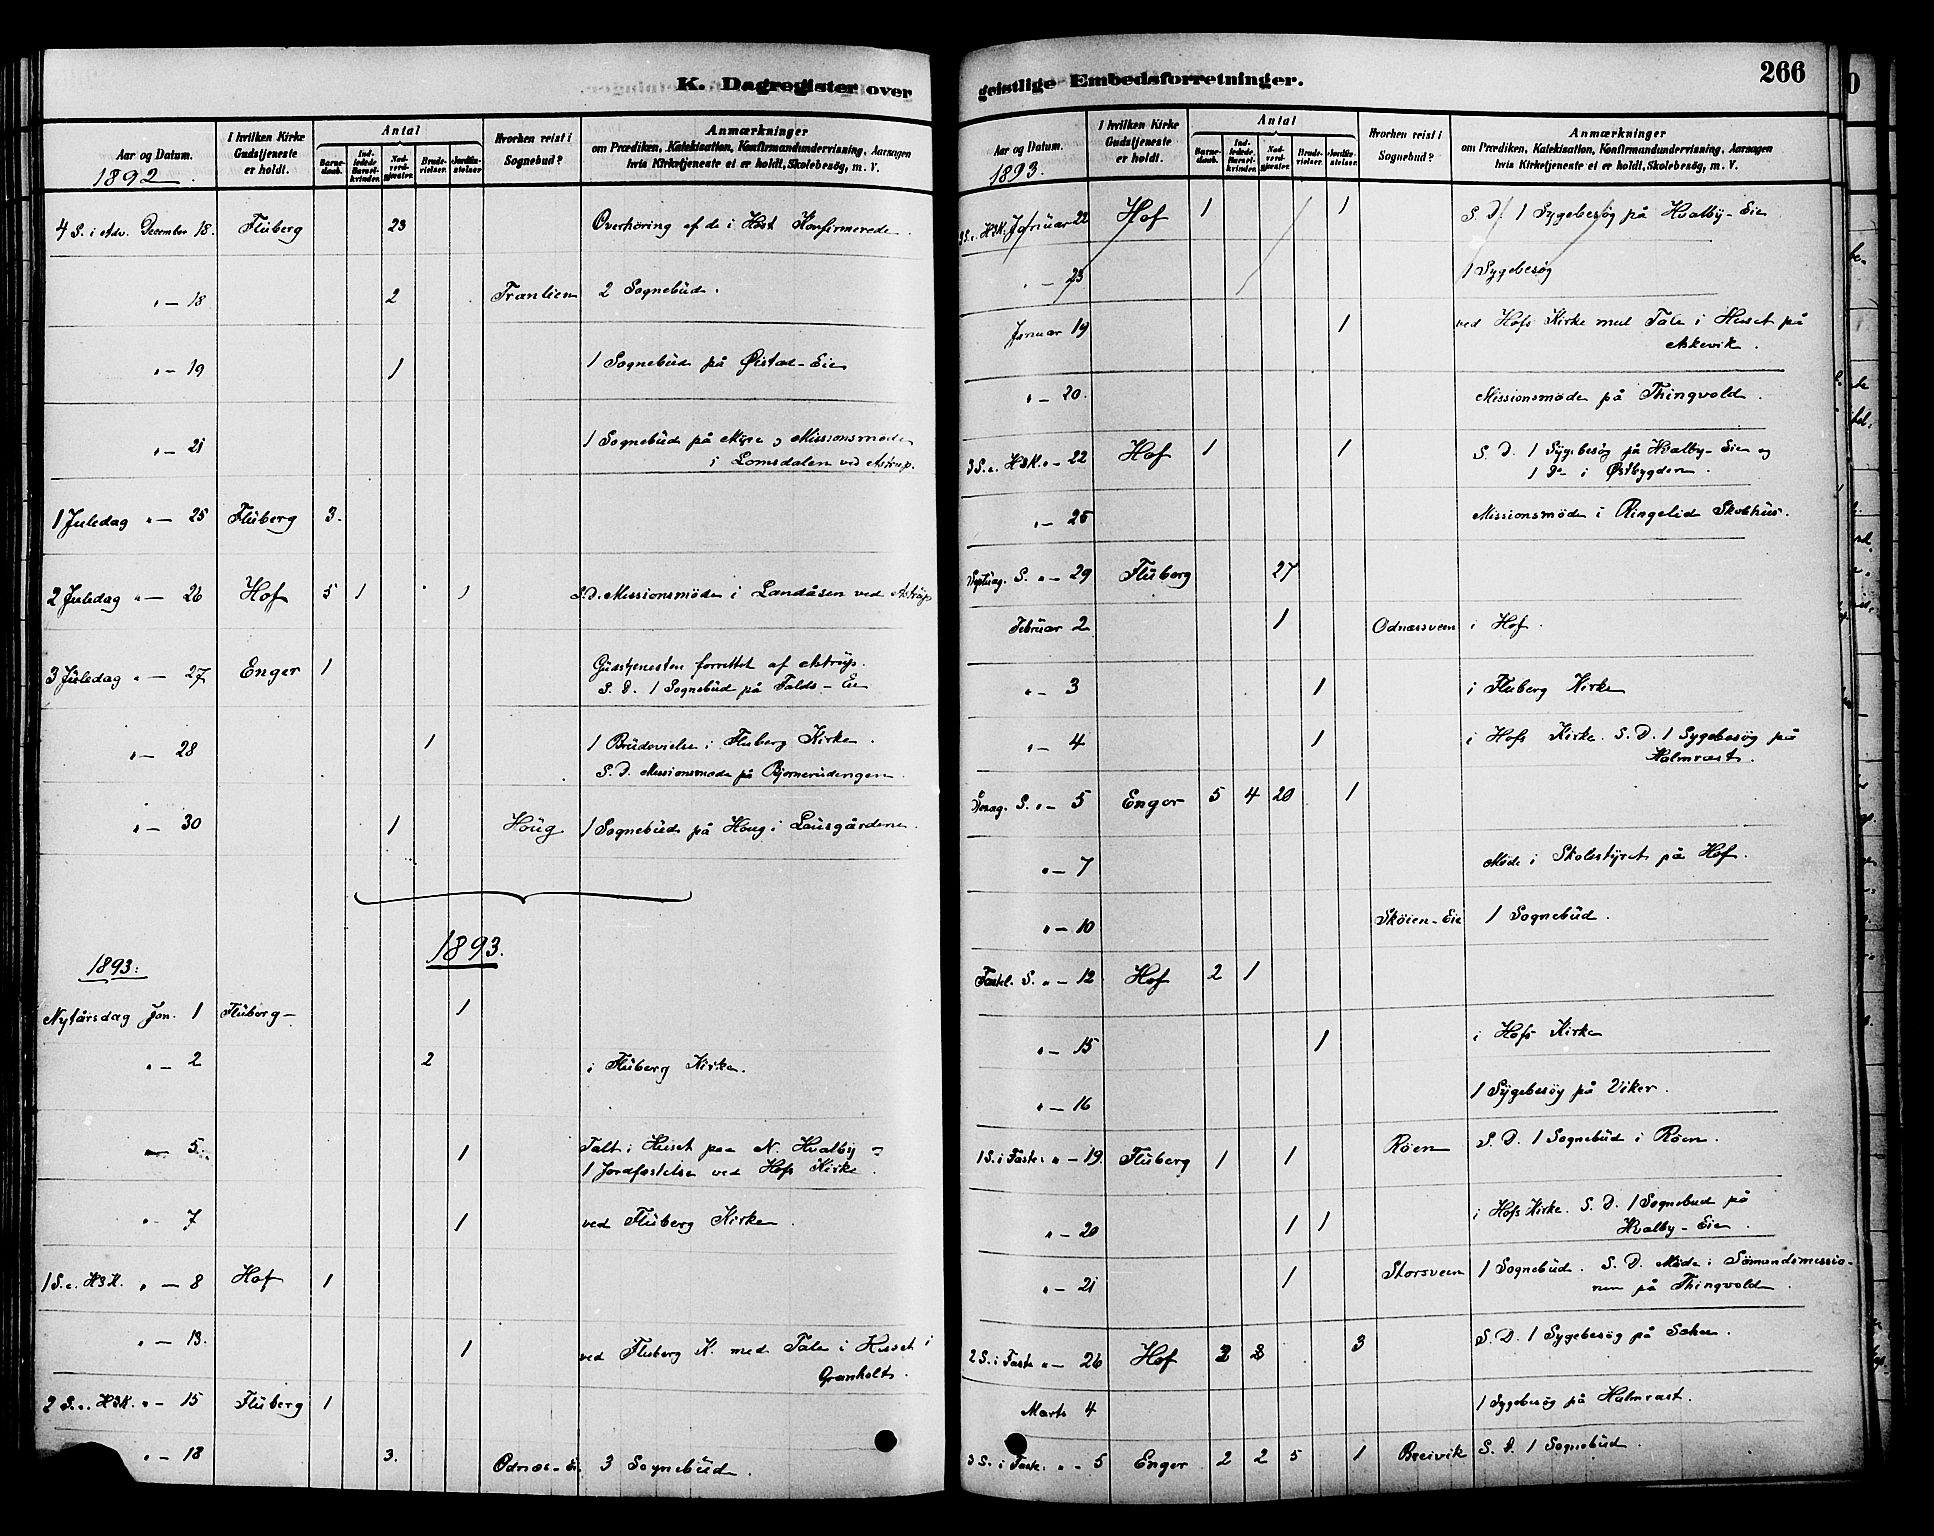 K. Dagregister over
Aar og Datum.
1892
I hvilken Kirke Gudstjeneste er holdt.
Antal
Barnedaab.
Indledede Barselkvinder.
Nadverdgjester.
Brudevielser.
Jordfæstelser
Hvorhen reist i Sognebud?
Anmærkninger
om Prædiken, Katekisation, Konfirmandundervisning, Aarsagen
hvis Kirketjeneste ei er holdt, Skolebesøg, m. V.
4 S. i Adv. December 18. Fluberg 23 Overhøring af de i Høst Konfirmerede.
" — 18 2 Franlien 2 Sognebud.
" — 19 1 1 Sognebud på Øistad-Eie
" — 21 1 Sognebud på og Missionsmøde
i Lomsdalen ved Astrup.
1 Juledag " — 25 Fluberg 3.
2 Juledag " — 26 Hof 5 1 1 S.D. Missionsmøde i Landåsen ved Astrup
3 Juledag " — 27 Enger 1 Gudstjenesten forrettet af Astrup.
S. D. 1 Sognebud på Falds-Eie
" — 28 1 1 Brudevielse i Fluberg Kirke.
S. D. Missionsmøde på Bjørnerudengen.
" — 30 1 Houg 1 Sognebud på Houg i Lausgårdene.
1893.
1893:
Nytårsdag Jan. 1 Fluberg — 1
" — 2 2 i Fluberg Kirke.
" — 5. 1 Talt i Huset paa N. Hvalby —
1 Jordfæstelse ved Hofs Kirke.
" — 7 1 ved Fluberg Kirke.
1 S. e. H3K. " — 8 Hof 1
" — 13. 1 ved Fluberg K. med Tale i Huset i
Granholt.
2 S. e. H3K. " — 15 Fluberg 1
" — 18 3. Odnæs-Ei. 3 Sognebud.
geistlige Embedsforretninger.
266
Aar og Datum.
1893.
I hvilken Kirke Gudstjeneste er holdt.
Antal
Barnedaab.
Indledede Barselkvinder.
Nadverdgjester.
Brudevielser.
Jordfæstelser.
Hvorhen reist i Sognebud?
Anmærkninger
om Prædiken, Katekisation, Konfirmandundervisning, Aarsagen
hvis Kirketjeneste ei er holdt, Skolebesøg, m. V.
3 S. e. H3K. Januar 22 Hof 1 1 S. D. 1 Sygebesøg på Hvalby-Eie
" — 23 1 Sygebesøg
Januar 19 1 ved Hofs Kirke med Tale i Huset på
Askevik.
" — 20. Missionsmøde på Thingvold.
3 S. e. H3K. " — 22 Hof 1 1 S. D. 1 Sygebesøg på Hvalby-Eie og
1 Do i Østbygden.
" — 25 Missionsmøde i Ringelid Skolehus.
Septuag. S. " — 29 Fluberg 27
Februar 2 1 Odnæssveen i Hof.
" — 3 1 i Fluberg Kirke
" — 4 1 i Hofs Kirke. S. D. 1 Sygebesøg på
Halmrast.
S. " — 5 Enger 5 4 20 1
" — 7 Møde i Skolestyret på Hof.
" — 10 Skøien-Eie 1 Sognebud.
Fastel. S. " — 12 Hof 2 1
" — 15 1 i Hofs Kirke
" — 16 1 Sygebesøg på Viker.
1 S. i Faste " — 19. Fluberg 1 1 Røen S. D. 1 Sognebud i Røen.
" — 20 1 1 i Hofs Kirke. S. D. 1 Sognebud på
Hvalby-Eie.
" — 21 1 Storsveen 1 Sognebud. S. D. Møde i Sømandsmissio-
nen på Thingvold.
2 S. i Faste " — 26 Hof 2 2 3 S. D. 1 Sygebesøg på
Marts 4 1 Sygebesøg på Halmrast.
3 S. i Faste. " — 5 Enger 2 2 5 1 Breivik S. D. 1 Sognebud.